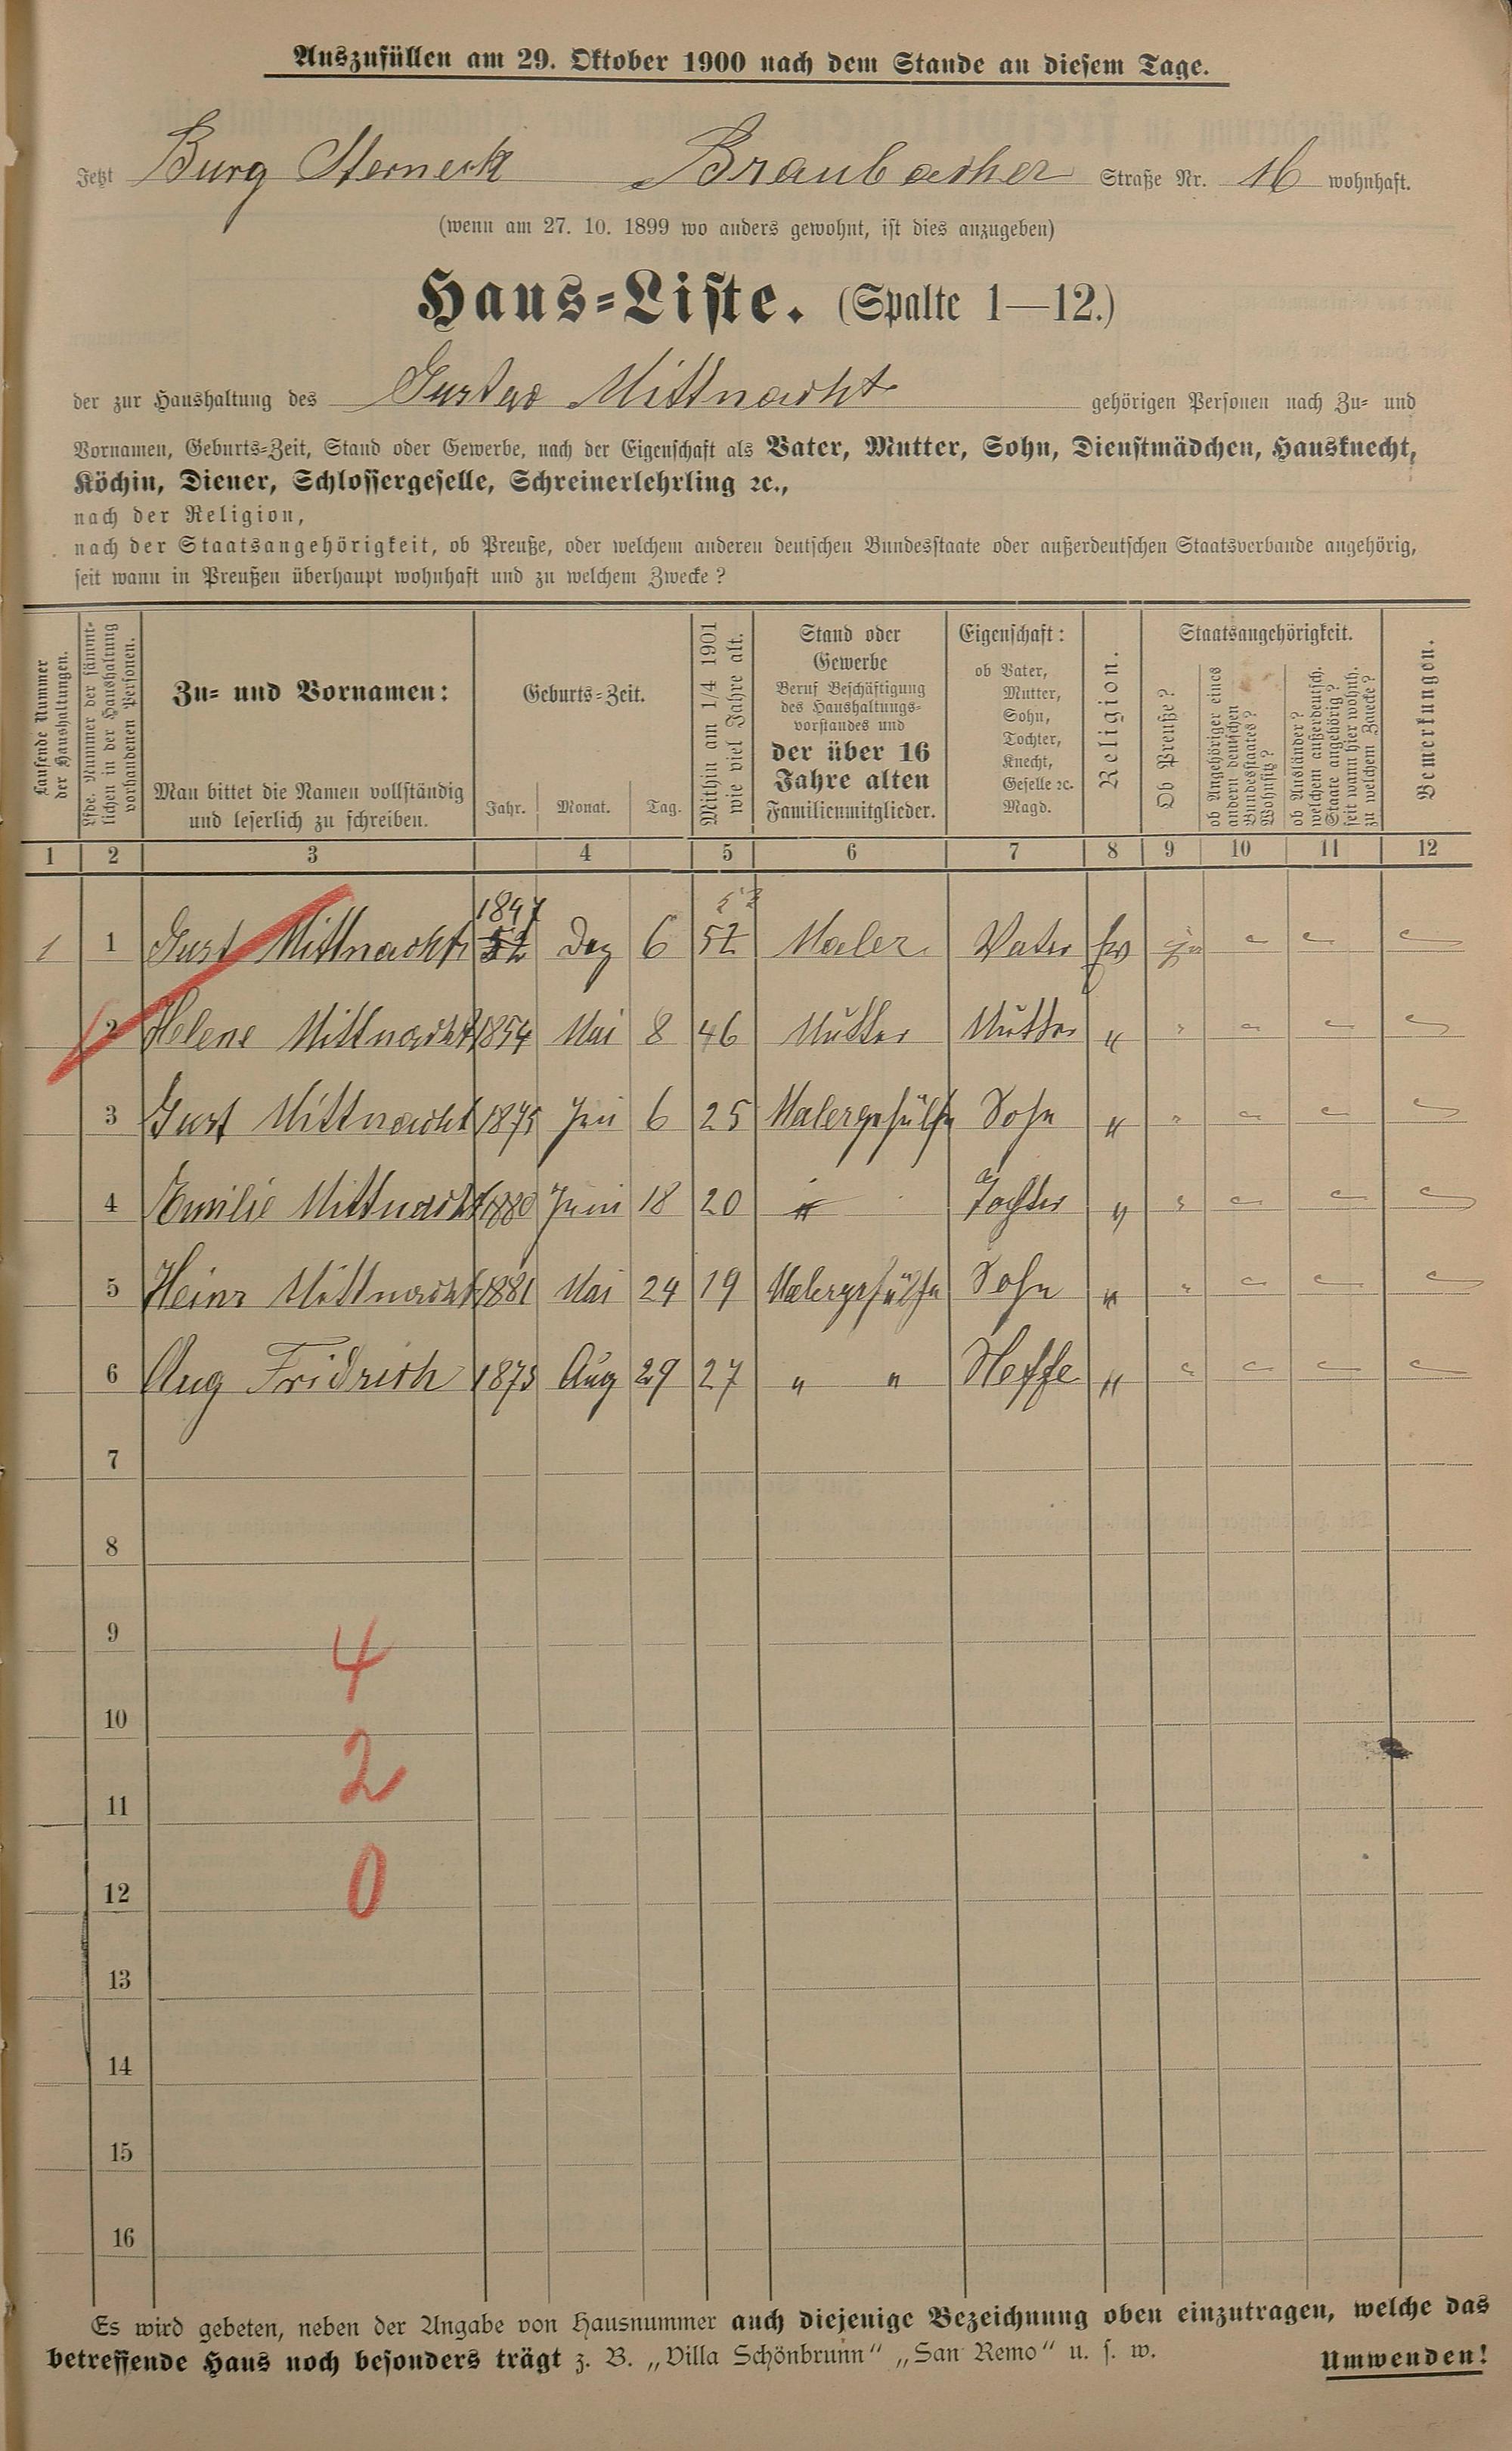 Auszufüllen am 29. Oktober 1900 nach dem Stande an diesem Tage.
Jetzt Burg Sterneck Braubacher Straße Nr. 16 wohnhaft.
(wenn am 27. 10. 1899 wo anders gewohnt, ist dies anzugeben)
Haus-Liste. (Spalte 1—12.)
der zur Haushaltung des Gustav Mittnacht gehörigen Personen nach Zu- und
Vornamen, Geburts-Zeit, Stand oder Gewerbe, nach der Eigenschaft als Vater, Mutter, Sohn, Dienstmädchen, Hausknecht,
Köchin, Diener, Schlossergeselle, Schreinerlehrling ꝛc.,
nach der Religion,
nach der Staatsangehörigkeit, ob Preuße, oder welchem anderen deutschen Bundesstaate oder außerdeutschen Staatsverbande angehörig,
seit wann in Preußen überhaupt wohnhaft und zu welchem Zwecke?
Laufende Nummer
der Haushaltungen.
Lfde. Nummer der sämmt-
lichen in der Haushaltung
vorhandenen Personen.
Zu- und Vornamen:
Man bittet die Namen vollständig
und leserlich zu schreiben.
Geburts-Zeit.
Jahr. Monat. Tag.
Mithin am 1/4 1901
wie viel Jahre alt.
Stand oder
Gewerbe
Beruf Beschäftigung
des Haushaltungs-
vorstandes und
der über 16
Jahre alten
Familienmitglieder.
Eigenschaft:
ob Vater,
Mutter,
Sohn,
Tochter,
Knecht,
Geselle ꝛc.
Magd.
Religion.
Staatsangehörigkeit.
Ob Preuße?
ob Angehöriger eines
andern deutschen
Bundesstaates?
Wohnsitz?
ob Ausländer?
welchem außerdeutsch.
Staate angehörig?
seit wann hier wohnh.
zu welchem Zwecke?
Bemerkungen.
1 2 3 4 5 6 7 8 9 10 11 12
1 1 Gust Mittnacht Dez 6 52 Maler Vater
2 Helene Mittnacht 1854 Mai 8 46 Mutter Mutter "
3 Gust Mittnacht 1875 6 25 Malergehülfe Sohn " "
4 Emilie Mittnacht 1880 Juni 18 20 Tochter " "
5 Heinr Mittnacht 1881 Mai 24 19 Malergehülfe Sohn " "
6 Aug Fridrich 1873 Aug 29 27 " " Neffe " "
7
8
9
4
10
2
11
12
0
13
14
15
16
Es wird gebeten, neben der Angabe von Hausnummer auch diejenige Bezeichnung oben einzutragen, welche das
betreffende Haus noch besonders trägt z. B. „Villa Schönbrunn“ „San Remo“ u. s. w. Umwenden!